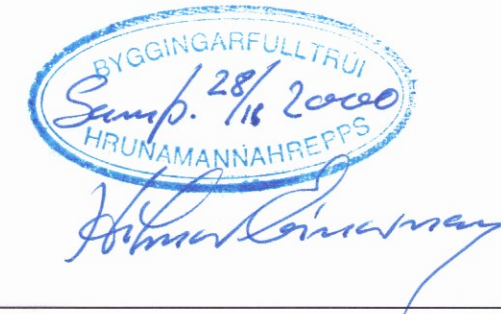 BYGGINGARFULLTRÚI
Samþ. 28/11 2000
HRUNAMANNAHREPPS
Hilmar Einarsson